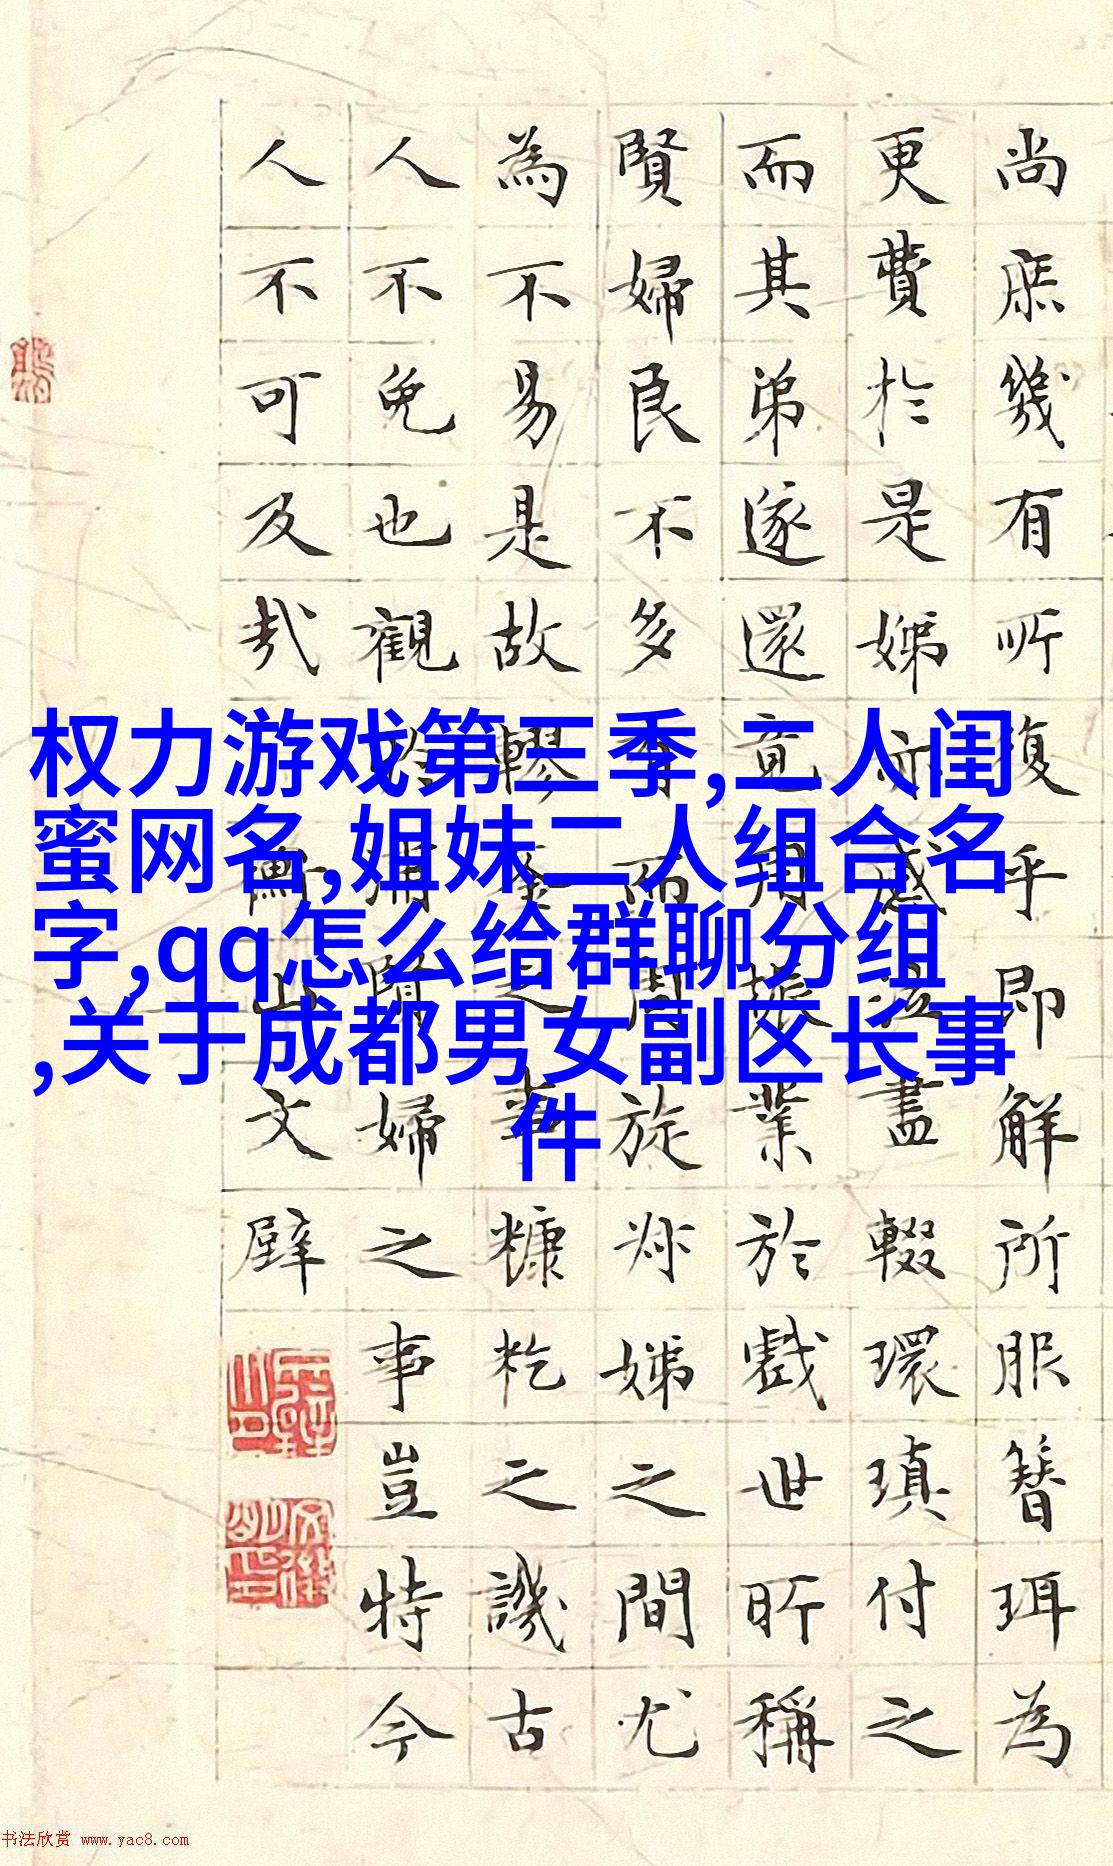 权力游戏第三季,二人闺
蜜网名,姐妹二人组合名
字,qq怎么给群聊分组
,关于成都男女副区长事
件
尚庶幾有所復乎即解所服簪珥為
更費於是娣感泣盡輟環瑱付之
而其弟遂還竟用振業於戲世所稱
賢婦良不多有而周旋娣之間尤
為不易是故轑釜之事糠籺之譏古
人不免也觀婦之事豈特今
人不可及哉山文璧
书法欣赏 www.yac8.com